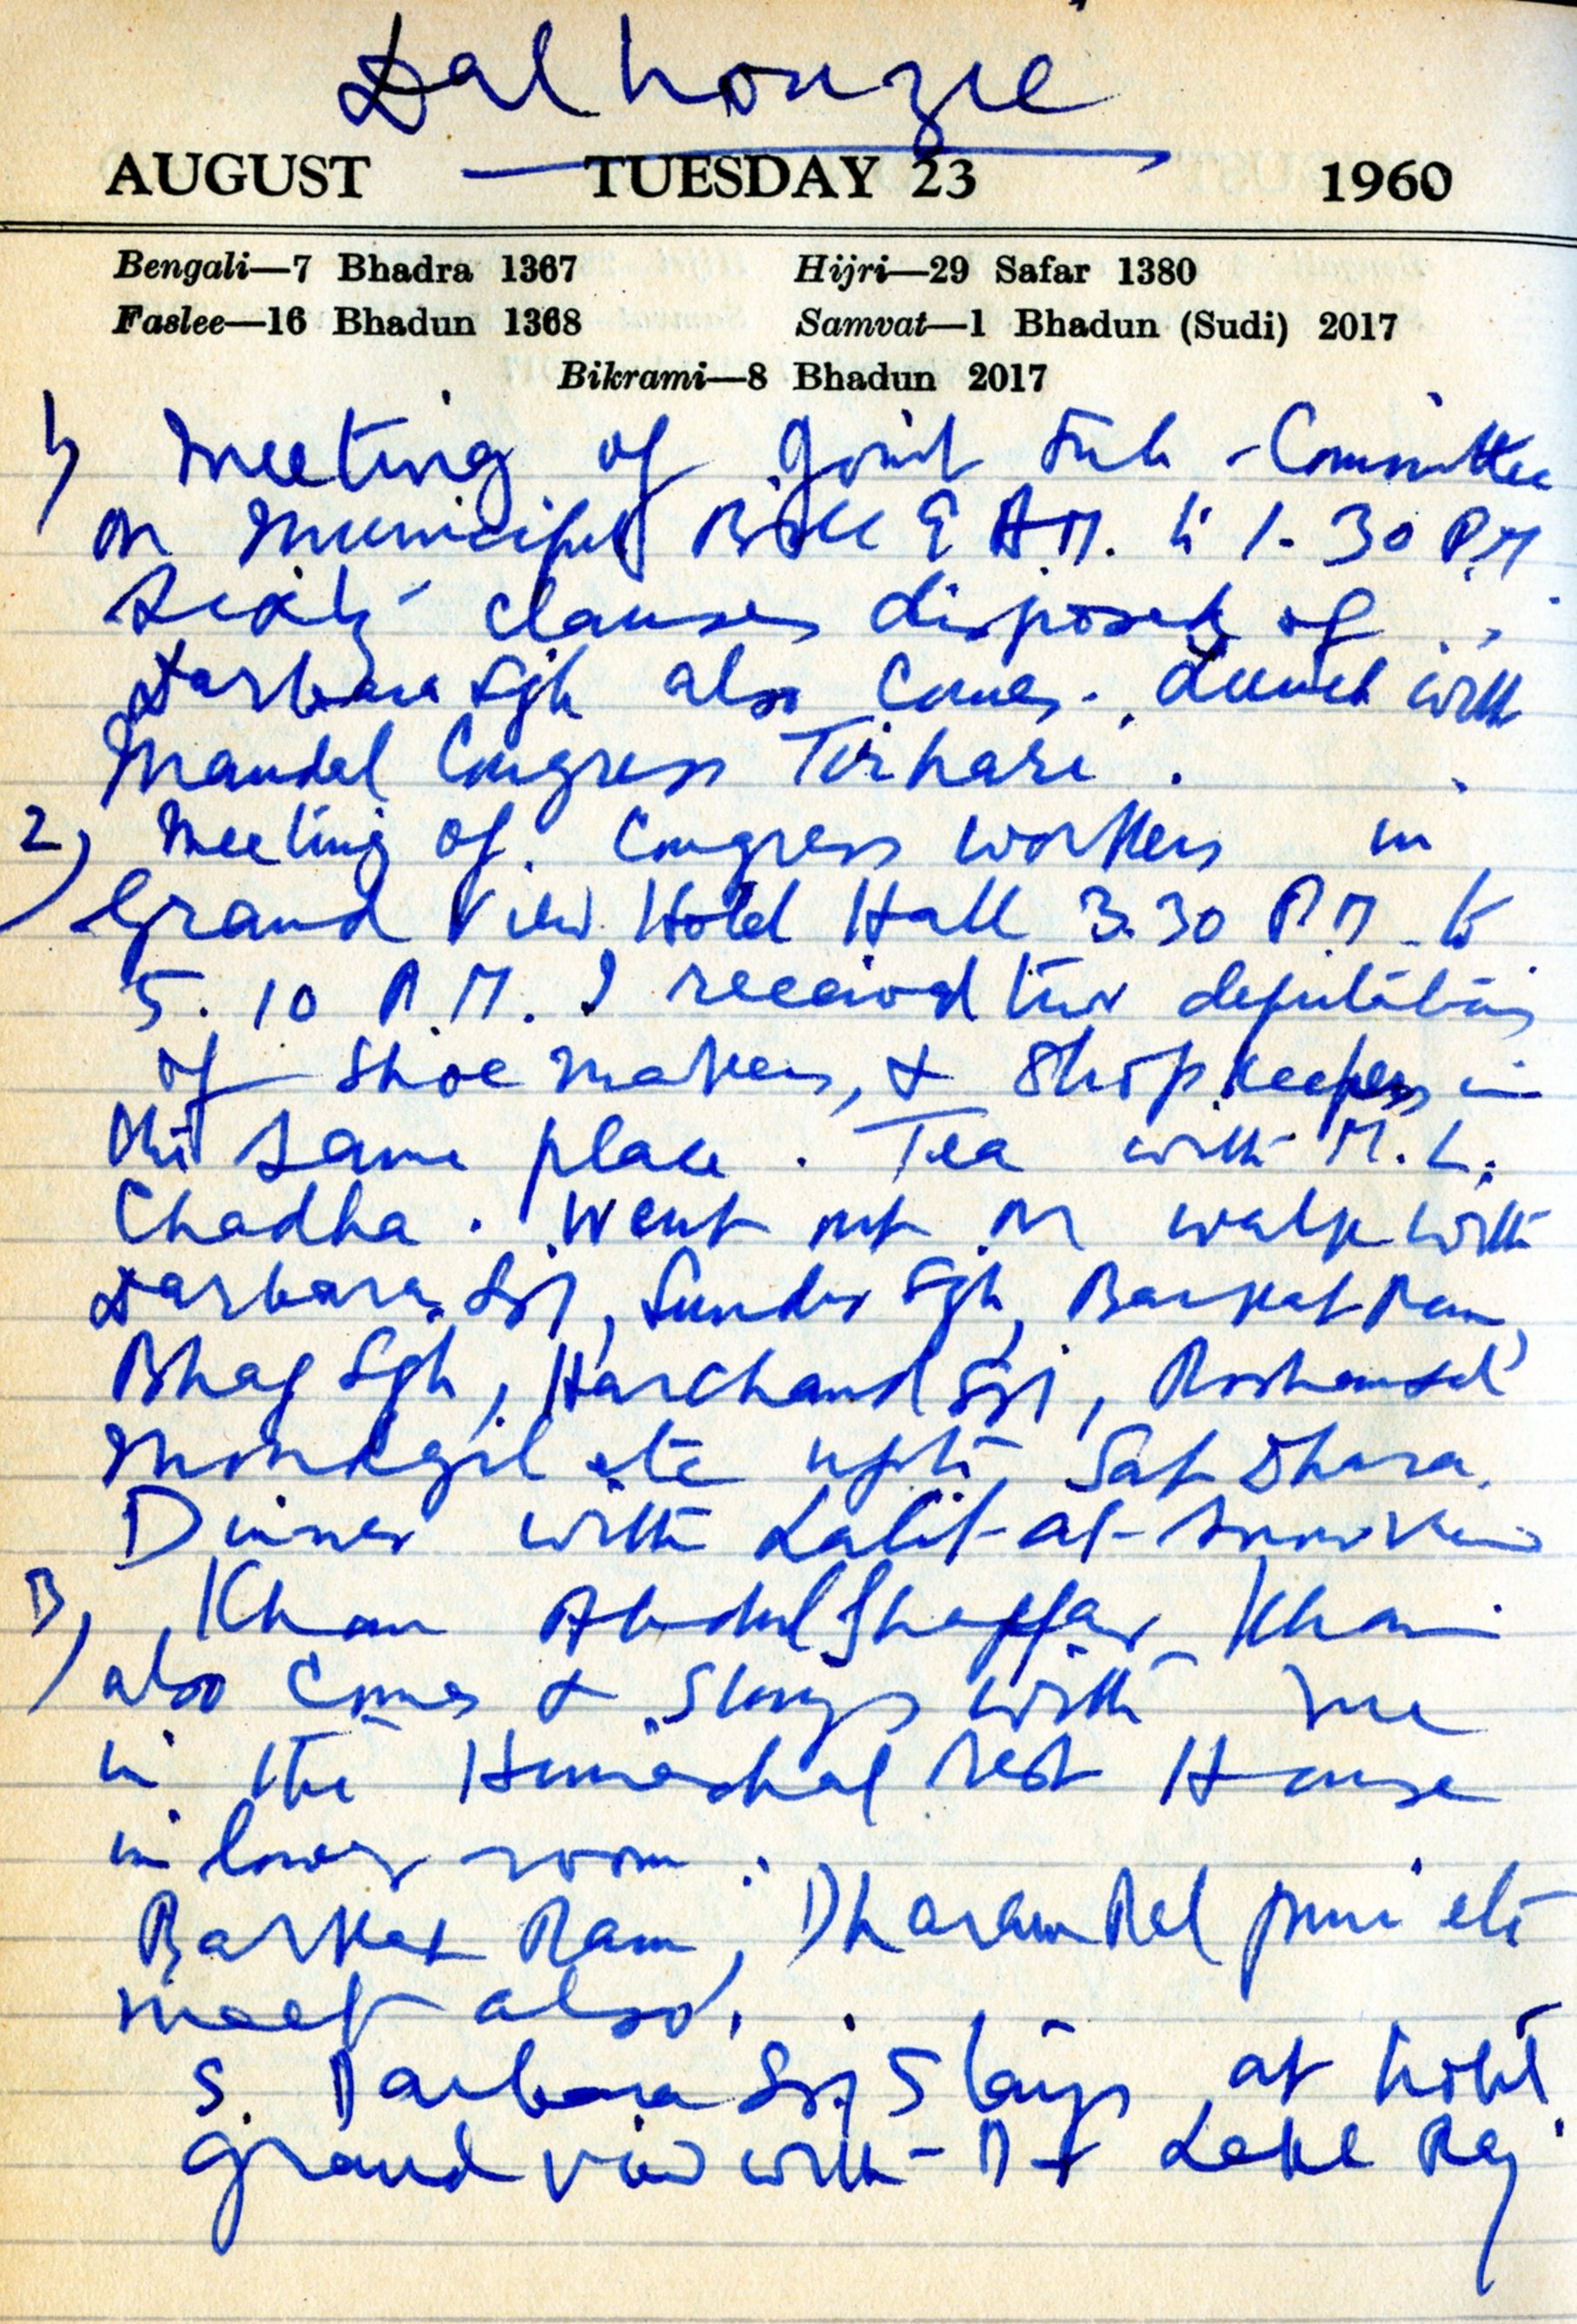 Dalhouzie
AUGUST TUESDAY 23 1960
Bengali—7 Bhadra 1367 Hijri—29 Safar 1380
Faslee—16 Bhadun 1368 Samvat—1 Bhadun (Sudi) 2017
Bikrami—8 Bhadun 2017
1) Meeting of Joint Sub-Committee
on Municipal Bill 9 A.M. to 1.30 P.M
Sixty clauses disposed of
Darbara Sgh also comes. Lunch with
Mandal Congress
2) Meeting of Congress workers in
Grand View Hotel Hall 3.30 P.M. to
5.10 P.M. I received two deputations
of Shoe makers, & Shopkeepers in
the same place. Tea with M.L.
Chadha. Went out on walk with
Darbara Sgh, Sunder Sgh, Barkat Ram,
Bhag Sgh, Harchand Sgh,
etc upto Sat Dhara.
Dinner with Lalit at Snow View
3) Khan Abdul Ghaffar Khan
also comes & stays with me
in the Himachal Rest House
in lower room.
Barkat Ram, Dharam Pal Puri etc
meet also.
S. Darbara Sgh stays at hotel
Grand View with Raj